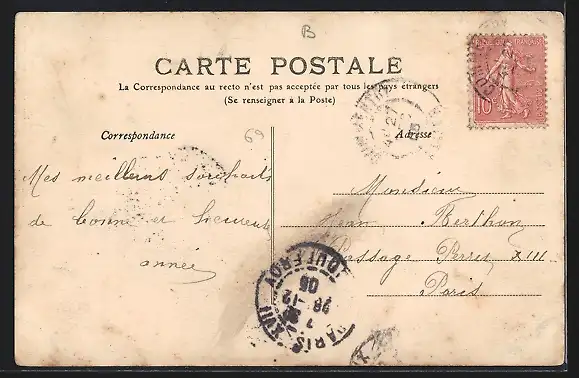 B
CARTE POSTALE
La Correspondance au recto n'est pas acceptée par tous les pays étrangers
(Se renseigner à la Poste)
Correspondance
69
Adresse
Mes meilleurs souhaits
de bonne et heureuse
année
Monsieur
Jean Berthon
Passage
Paris
10
PARIS XVII
JOUFFROY
7
28-12
05